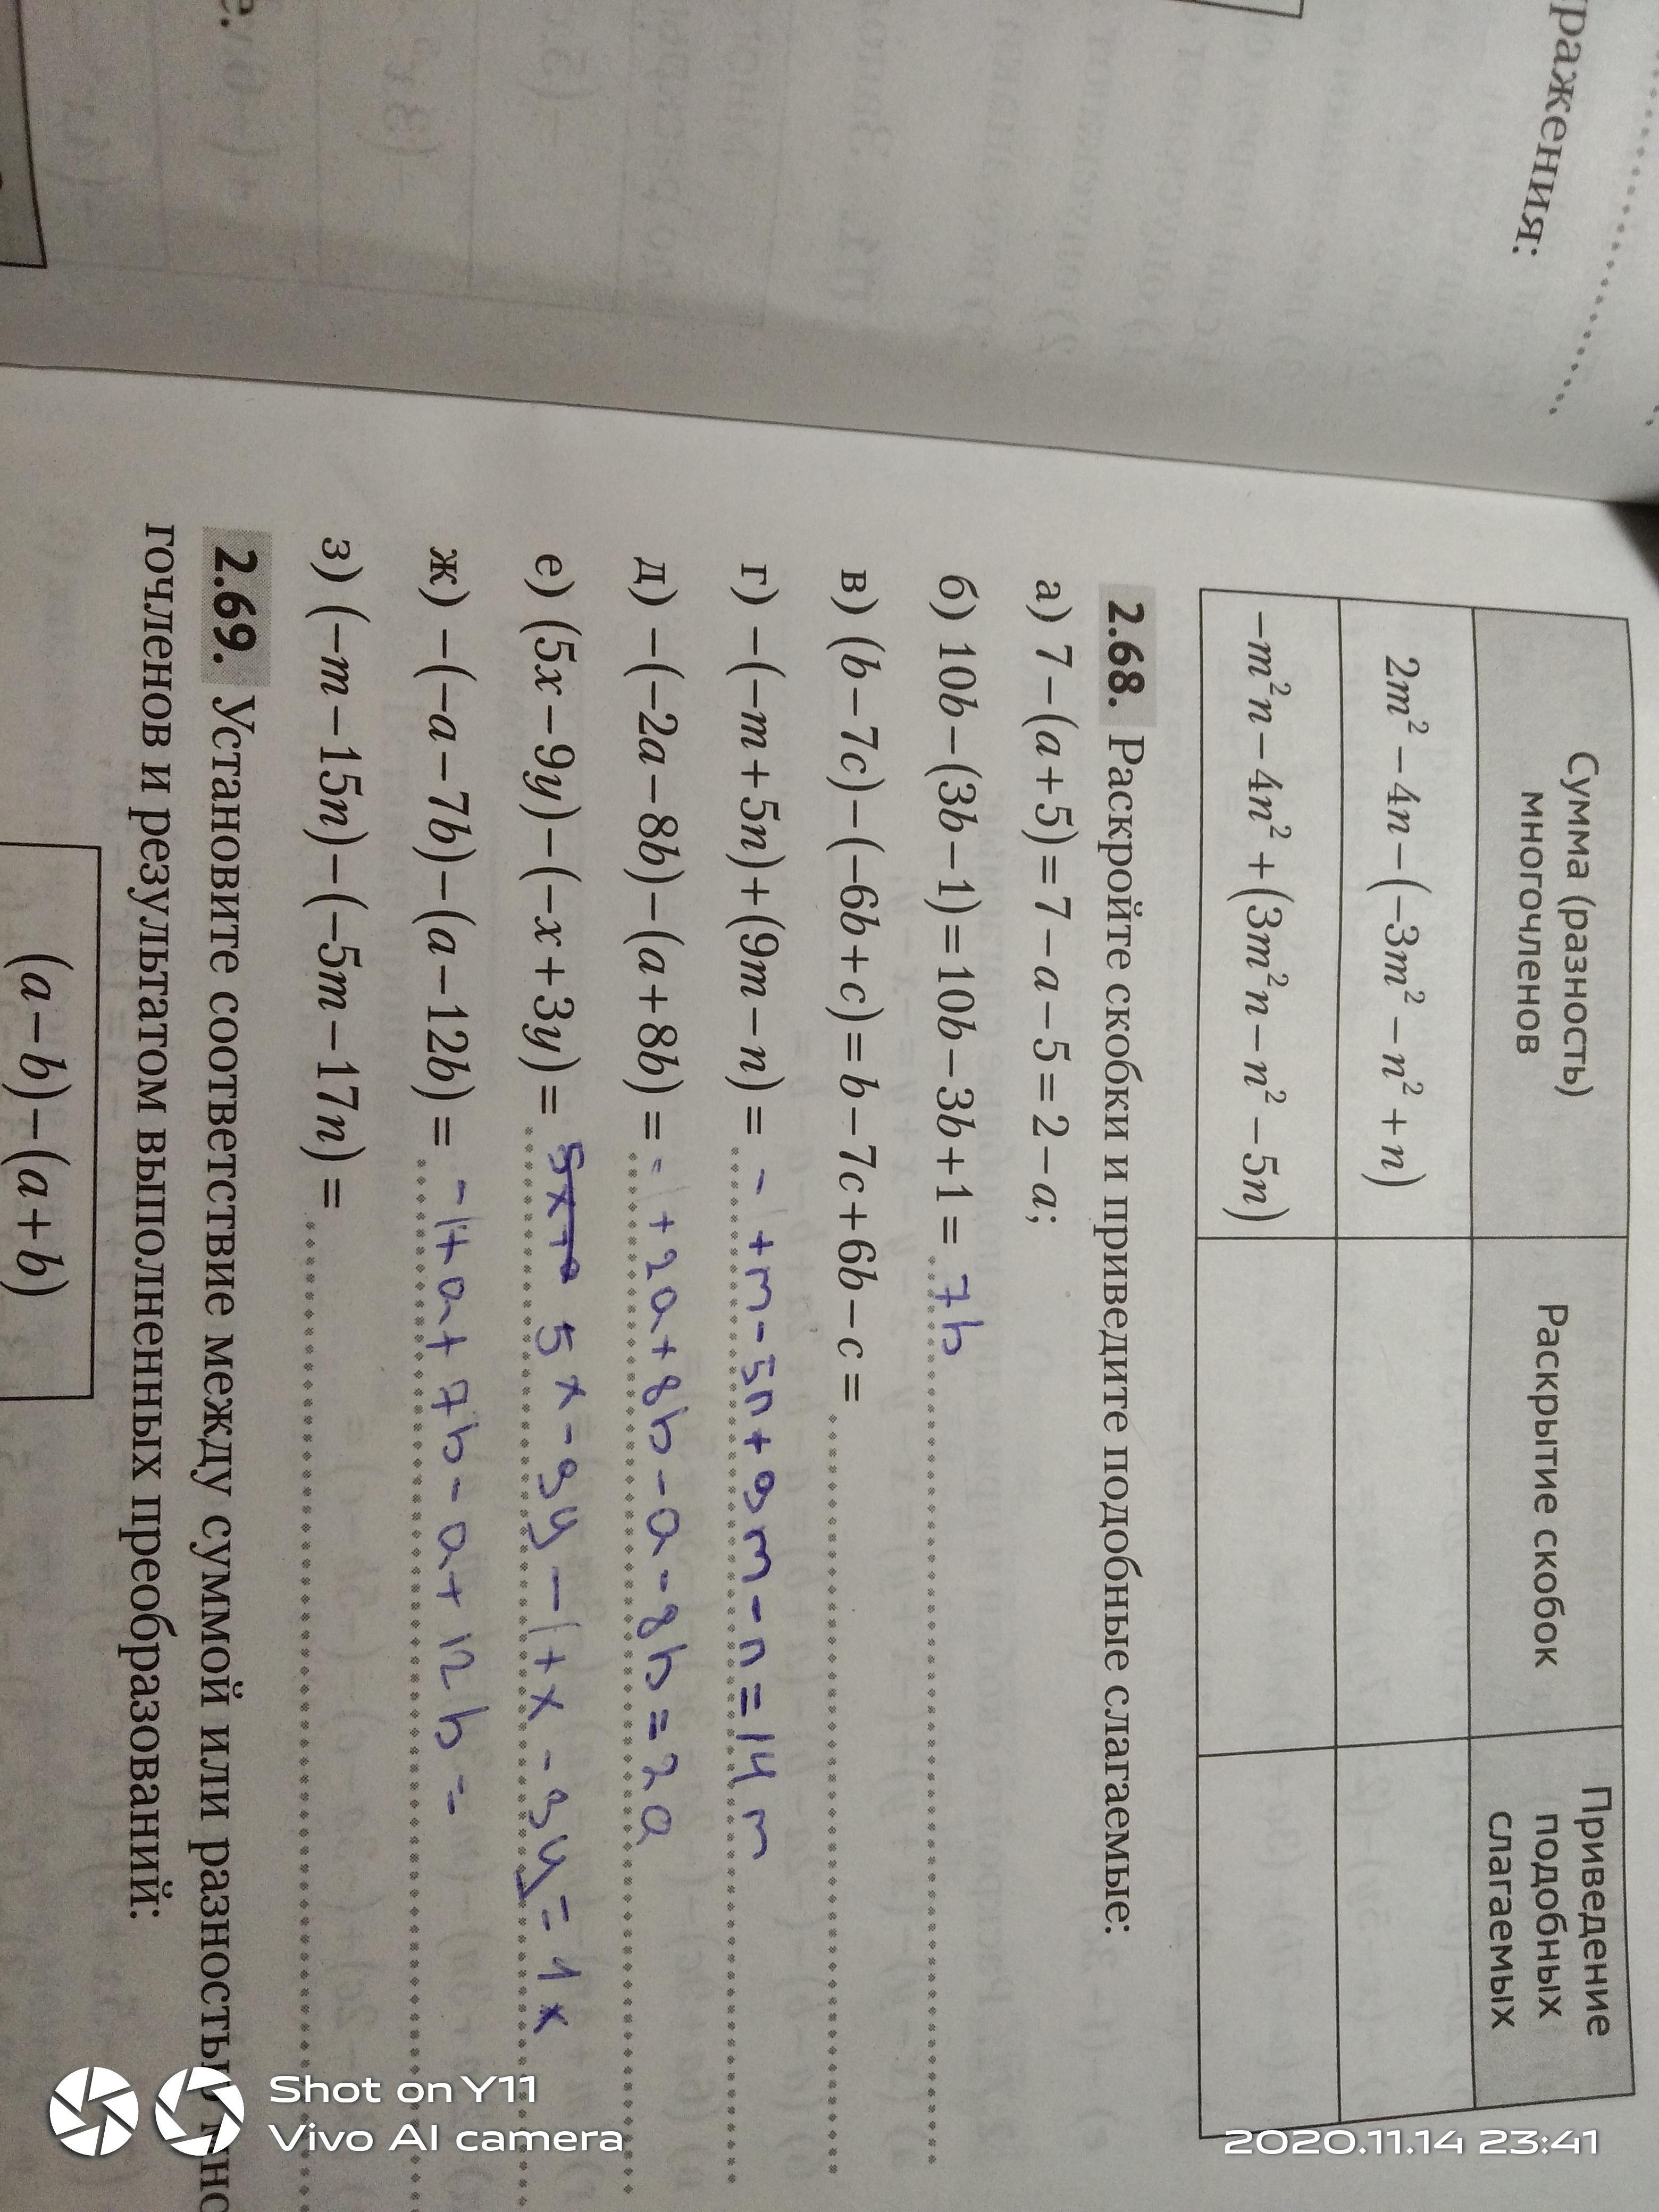 ражения:
Сумма (разность) многочленов
Раскрытие скобок
Приведение подобных слагаемых
2m² − 4n − (−3m² − n² + n)
−m²n − 4n² + (3m²n − n² − 5n)
2.68. Раскройте скобки и приведите подобные слагаемые:
а) 7 − (a + 5) = 7 − a − 5 = 2 − a;
б) 10b − (3b − 1) = 10b − 3b + 1 = 7b
в) (b − 7c) − (−6b + c) = b − 7c + 6b − c =
г) −(−m + 5n) + (9m − n) = + m - 5n + 9m - n = 14m
д) −(−2a − 8b) − (a + 8b) = + 2a + 8b - a - 8b = 2a
е) (5x − 9y) − (−x + 3y) = 5x - 9y - + x - 3y = 1x
ж) −(−a − 7b) − (a − 12b) = - + a + 7b - a + 12b =
з) (−m − 15n) − (−5m − 17n) =
2.69. Установите соответствие между суммой или разностью мно
гочленов и результатом выполненных преобразований:
(a − b) − (a + b)
Shot on Y11
Vivo AI camera
2020.11.14 23:41